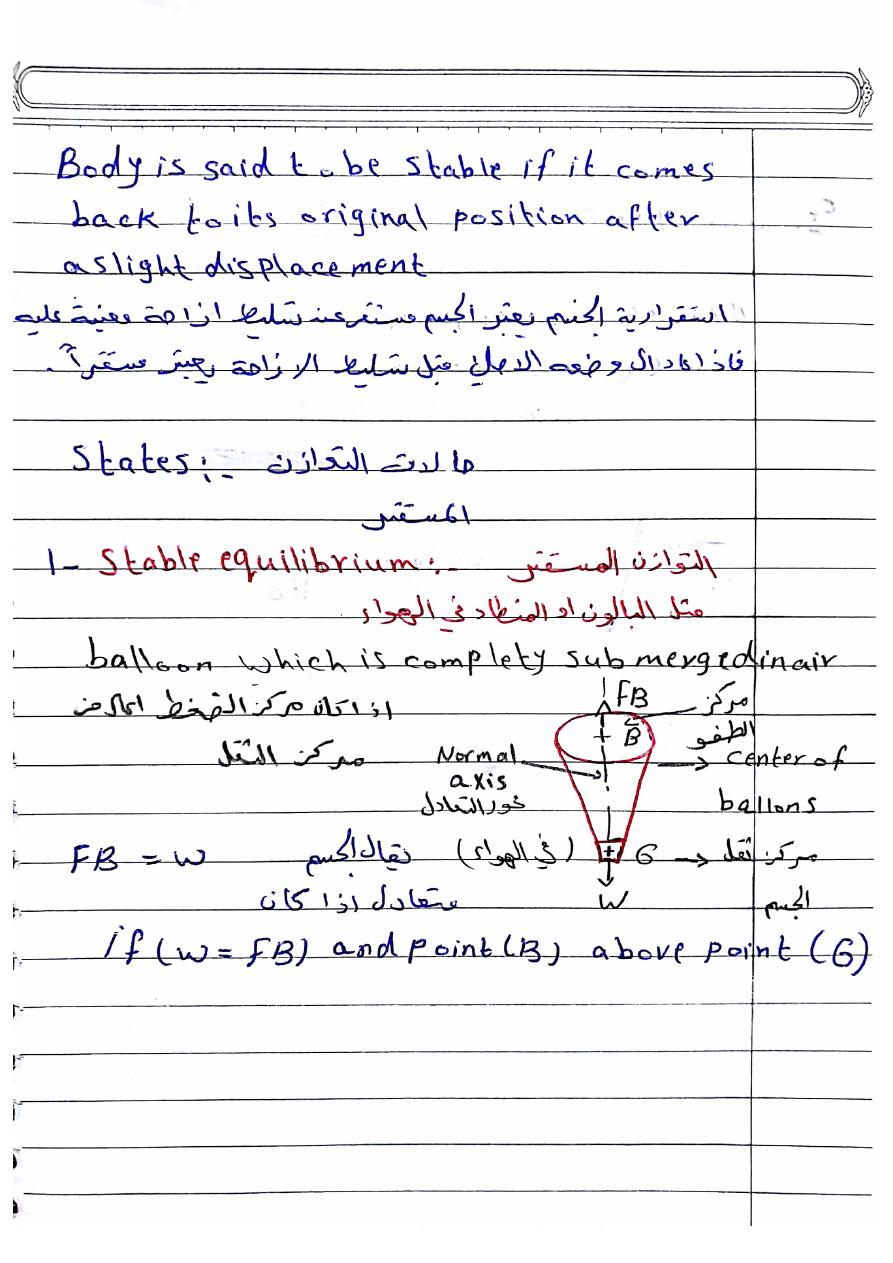 Body is said to be stable if it comes
back to its original position after
a slight displacement
استقرارية الجسم يعتبر الجسم مستقر عند تسليط ازاحة معينة عليه
فاذا عاد ال وضعه الاصلي قبل تسليط الازاحة يعتبر مستقراً.
States:- حالات التوازن
المستقر
1- Stable equilibrium:- التوازن المستقر
مثل البالون او المنطاد في الهواء
balloon which is complety submerged in air
اذا كان مركز الضغط اعلى من
مركز الثقل
FB
B
مركز
الطفو
Normal
axis
محور التعادل
center of
ballons
FB = W
يقال الجسم (في الهواء)
متعادل اذا كان
G
مركز ثقل
الجسم
W
if (W = FB) and point (B) above point (G)